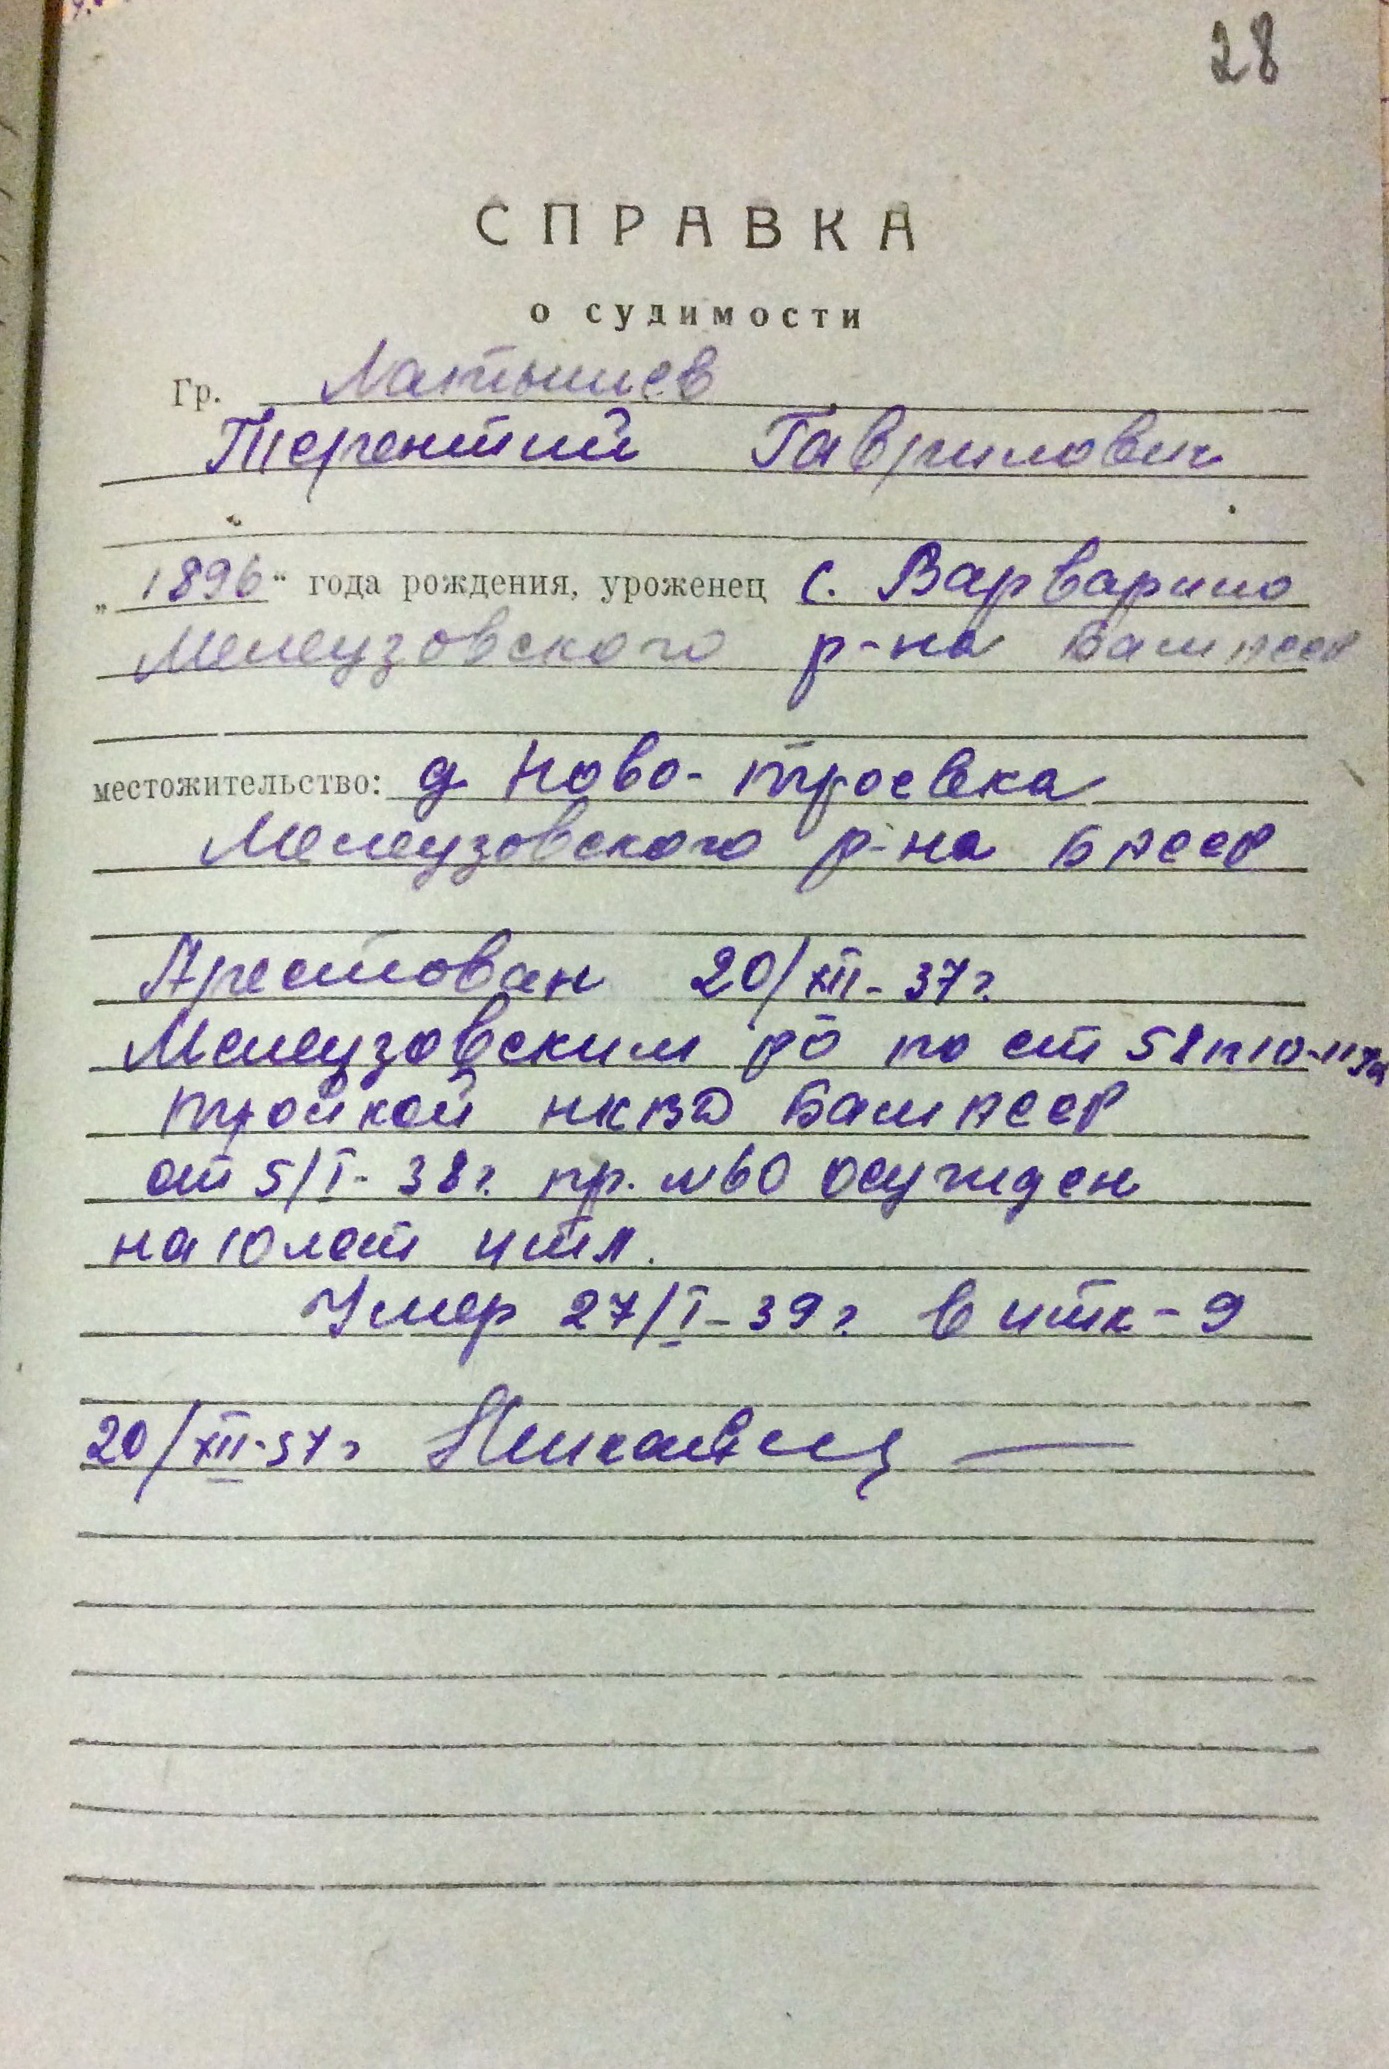 28
СПРАВКА
о судимости
Гр. Латышев
Терентий Гаврилович
„1896“ года рождения, уроженец с. Варварино
Мелеузовского р-на Башасср
местожительство: д Ново-троевка
Мелеузовского р-на Басср
Арестован 20/XII-37г.
Мелеузовским РО по ст 58п10-11 УК
тройкой НКВД Башасср
от 5/I-38г. пр. №60 осужден
на 10 лет итл.
Умер 27/I-39г. в итк-9
20/XII-57г